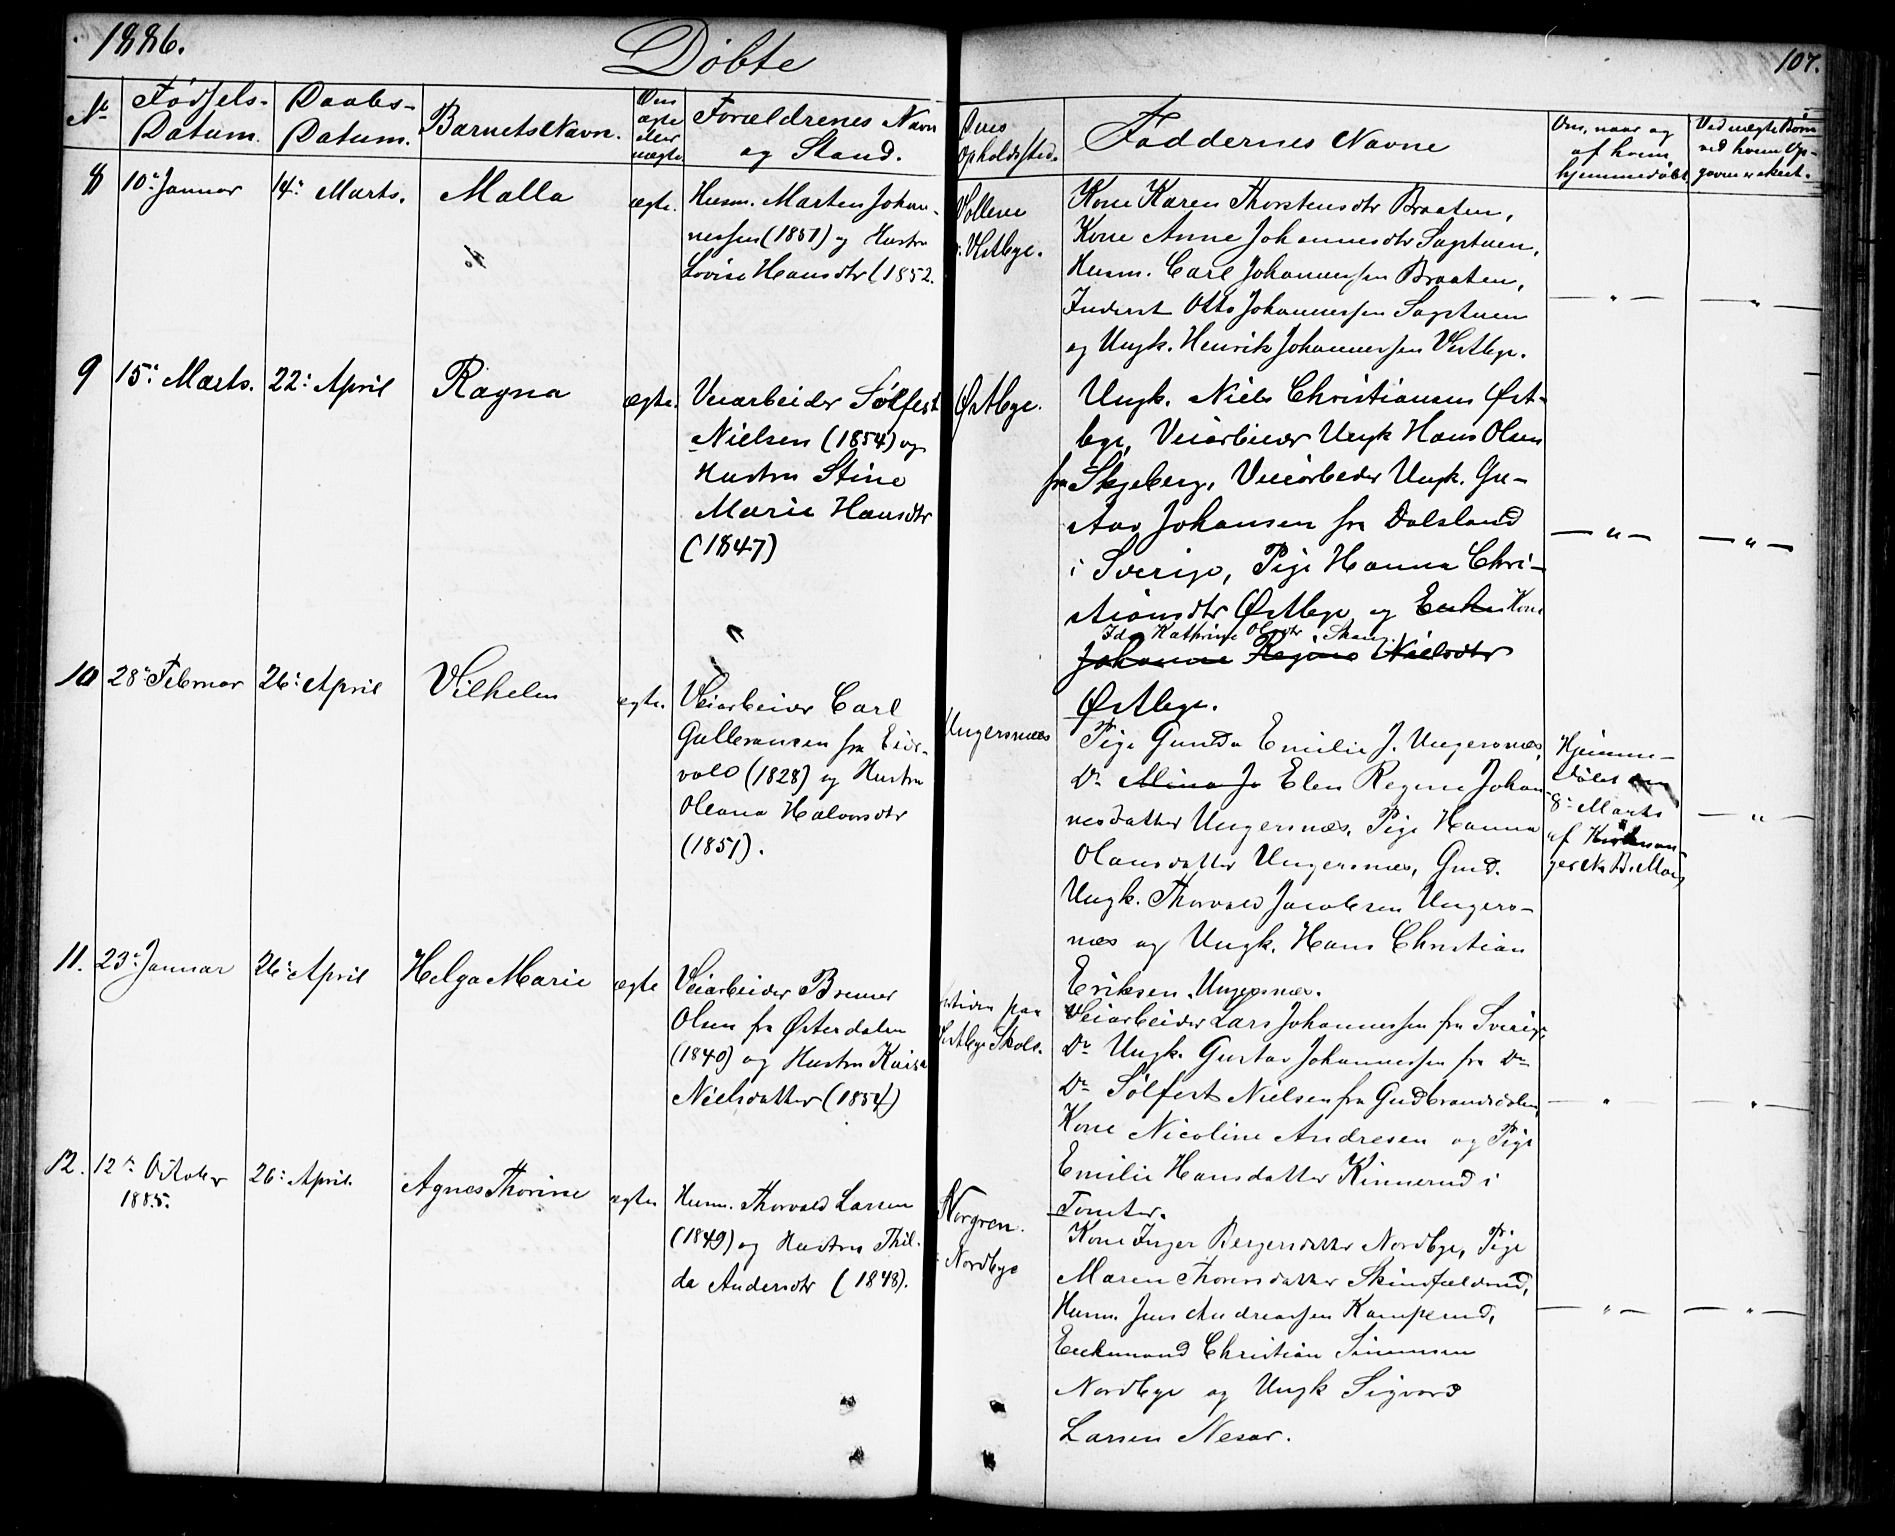 1886.
Döbte
107.
No
Födsels-
Datum.
Daabs-
Datum.
Barnets Navn.
Om
ægte
eller
uægte
Forældrenes Navn
og Stand.
Deres
Opholdssted.
Faddernes Navne
Om, naar og
af hvem
hjemmedöbt
Ved uægte Börn
ved hvem Op-
gaven er skeet.
8
10de Januar
14de Marts.
Malla
ægte.
Husm. Marten Johan-
nessen (1851) og Hustru
Lovise Hansdtr (1852.
Vollene
. Vestbye.
Kone Karen Thorstensdtr Braaten,
Kone Anne Johannesdtr Sagstuen,
Husm. Carl Johannessen Braaten,
Inderst Otto Johannessen Sagstuen
og Ungk. Henrik Johannessen Vestbye.
— " —
— " —
9
15de Marts.
22de April
Ragna
ægte.
Veiarbeider Sölfest
Nielsen (1854) og
Hustru Stine
Marie Hansdtr
(1847)
Østbye.
Ungk. Niels Christiansen Øst-
bye, Veiarbeider Ungk Hans Olsen
fra Skjeberg, Veiarbeider Ungk. Gu-
stav Johansen fra Dalsland
i Sverige, Pige Hanna Chri-
stiansdtr Østbye og Enke Kone
Ida Kathrine Olsdtr Skaug.
Johanne Regine Nielsdtr
Østbye.
— " —
— " —
10
28de Februar
26de April
Vilhelm
ægte.
Veiarbeider Carl
Gulbransen fra Eids-
vold (1828) og Hustru
Oleana Halvorsdtr
(1851).
Ungersnæs
Pige Gunda Emilie J. Ungersnæs,
Do Mina J. Elen Regine Johan-
nesdatter Ungersnæs, Pige Hanna
Olausdatter Ungersnæs, Gmd.
Ungk. Thorvald Jacobsen Ungers-
næs og Ungk. Hans Christian
Eriksen Ungersnæs.
Hjemme-
döbt
8de Marts
af Kirkesan-
ger
— " —
11.
23de Januar
26de April
Helga Marie
ægte
Veiarbeider Bremer
Olsen fra Østerdalen
(1840) og Hustru Kaisa
Nielsdatter (1854)
fortiden paa
Vestbye Skole.
Veiarbeider Lars Johannessen fra Sverige,
Do Ungk. Gustav Johannessen fra Do
Do Sölfest Nielsen fra Gudbrandsdalen,
Kone Nicoline Andresen og Pige
Emilie Hansdatter Kinnerud i
Tomter.
— " —
— " —
12.
12te October
1885.
26de April
Agnes Thorine
ægte
Husm. Thorvald Larsen
(1849) og Hustru Thil-
da Andersdtr (1848).
Norgren
i Nordbye
Kone Inger Bergersdatter Nordbye, Pige
Maren Thorersdatter Skindfælderud,
Husm. Jens Andreassen Kamperud,
Enkemand Christian Simensen
Nordbye og Ungk Sigvard
Larsen Nesar.
— " —
— " —